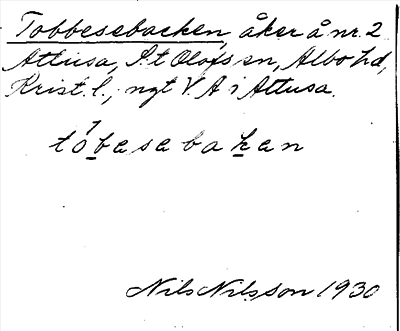 Tobbesebacken, åker å nr. 2
Attusa, S:t Olofs sn, Albo hd,
Krist. l., ngt V. A i Attusa.
tòbesebakan
Nils Nilsson 1930